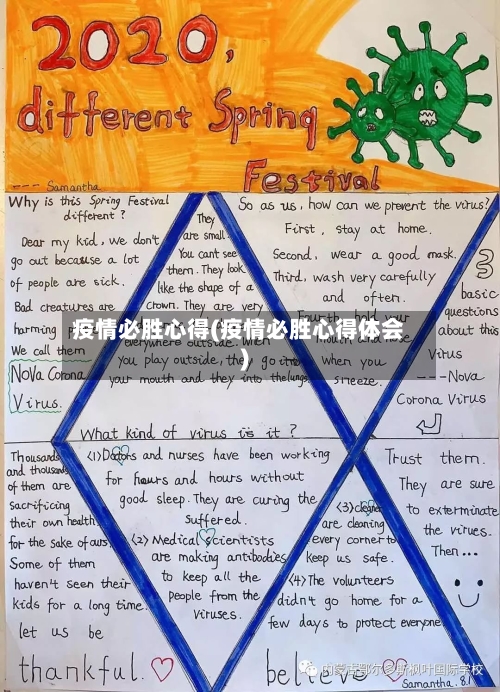 2020,
different Spring
Festival
---- Samantha
Why is this Spring Festival
different?
Dear my kid, we don't
go out because a lot
of people are sick.
Bad creatures are
harming
We call them
Nova Corona
Virus.
They
are small.
You cant see
them. They look
like the shape of a
crown. They are very
everywhere outside. When
you play outside, they go into
your mouth and they into the lungs.
What kind of virus is it?
So as us, how can we prevent the virus?
First, stay at home.
Second, wear a good mask.
Third, wash very carefully
and often.
Fourth, hold your
mouth and nose
when you
sneeze.
3
basic
questions
about this
Virus
---Nova
Corona Virus
疫情必胜心得(疫情必胜心得体会
)
Thousands
and thousands
of them are
sacrificing
their own health
for the sake of ours.
Some of them
haven't seen their
kids for a long time.
let us be
thankful.
<1> Doctors and nurses have been working
for hours and hours without
good sleep. They are curing the
suffered.
<2> Medical scientists
are making antibodies
to keep all the
people from the
viruses.
<3>
are cleaning
every corner to
keep us safe.
<4> The volunteers
didn't go home for a
few days to protect everyone.
believe
Trust them.
They are sure
to exterminate
the virues.
Then...
内蒙古鄂尔多斯枫叶国际学校
Samantha. 8.1